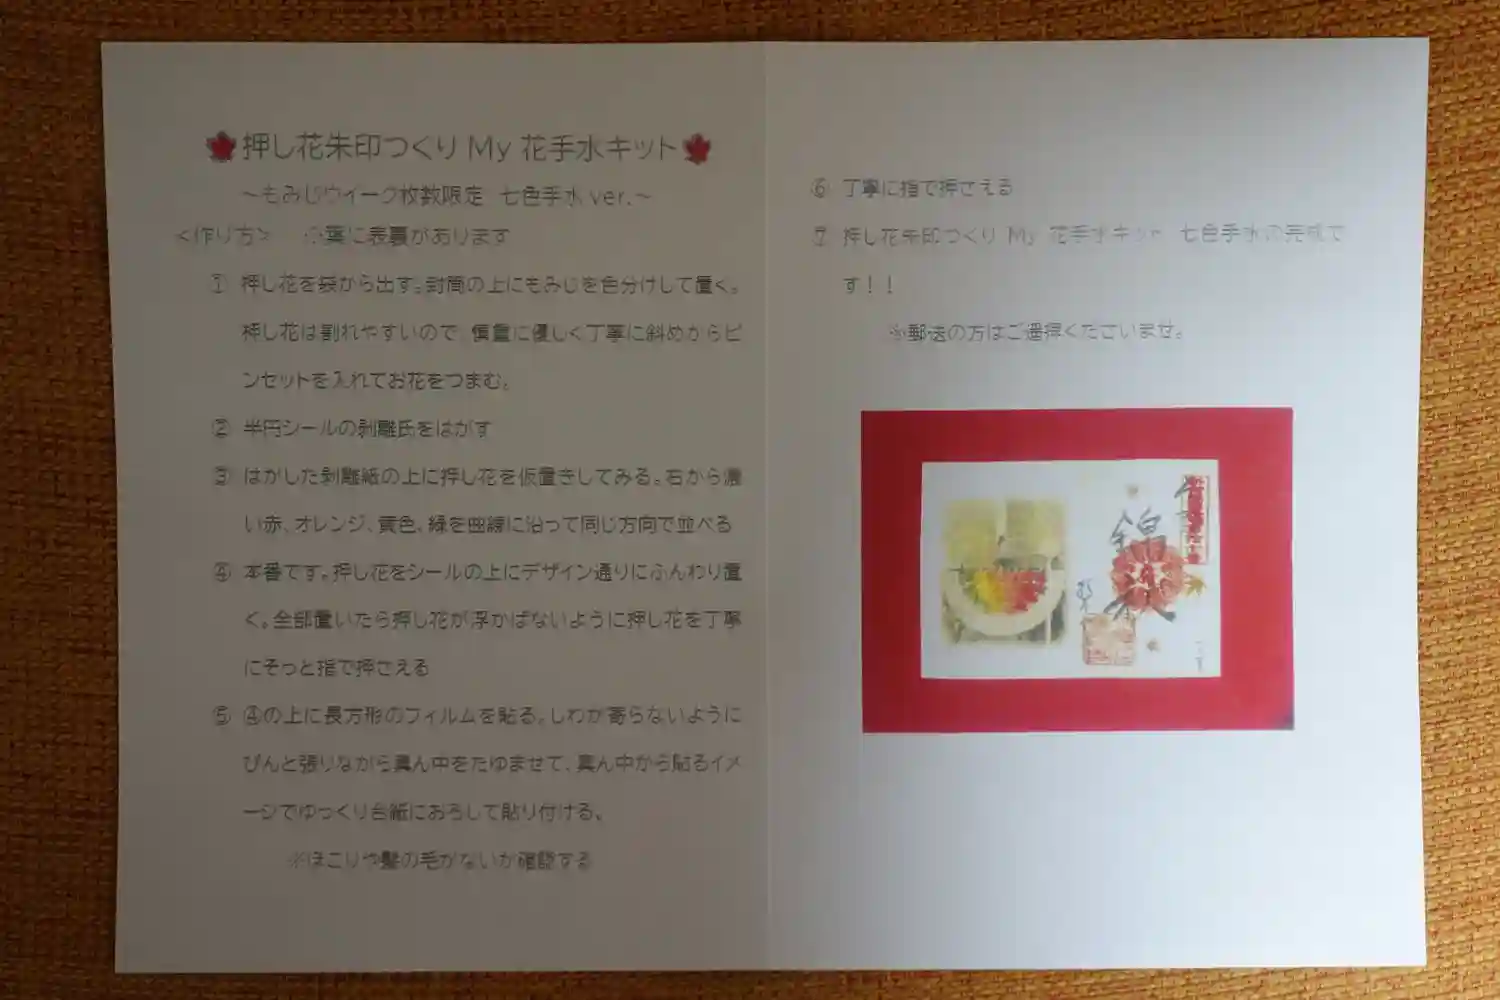 押し花朱印つくり My 花手水キット
～もみじウイーク枚数限定 七色手水 ver.～
＜作り方＞ ※葉に表裏があります
① 押し花を袋から出す。封筒の上にもみじを色分けして置く。
押し花は割れやすいので、慎重に優しく丁寧に斜めからピ
ンセットを入れてお花をつまむ。
② 半円シールの剥離氏をはがす
③ はがした剥離紙の上に押し花を仮置きしてみる。右から濃
い赤、オレンジ、黄色、緑を曲線に沿って同じ方向で並べる
④ 本番です。押し花をシールの上にデザイン通りにふんわり置
く。全部置いたら押し花が浮かばないように押し花を丁寧
にそっと指で押さえる
⑤ ④の上に長方形のフィルムを貼る。しわが寄らないように
ぴんと張りながら真ん中をたゆませて、真ん中から貼るイメ
ージでゆっくり台紙におろして貼り付ける。
※ほこりや髪の毛がないか確認する
⑥ 丁寧に指で押さえる
⑦ 押し花朱印つくり My 花手水キット 七色手水の完成で
す！！
※郵送の方はご遠慮くださいませ。
錦秋